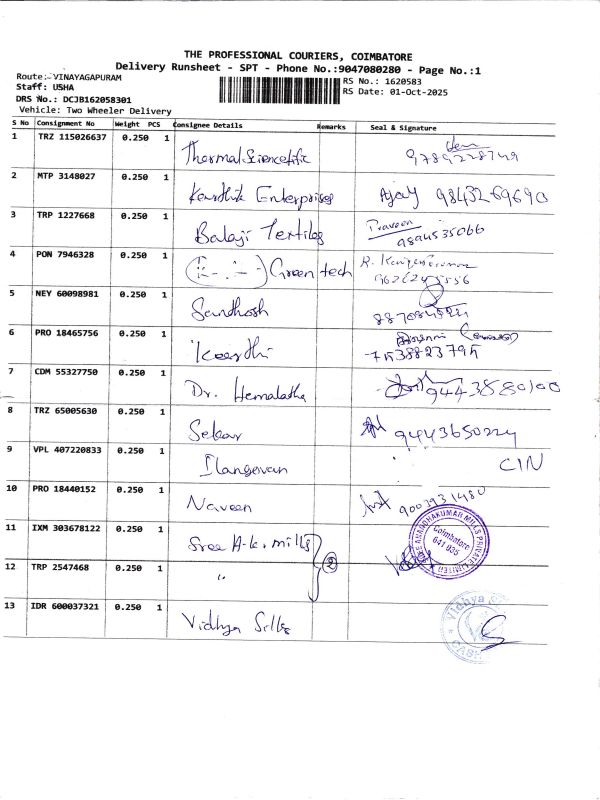 THE PROFESSIONAL COURIERS, COIMBATORE
Delivery Runsheet - SPT - Phone No.:9047080280 - Page No.:1
Route:- VINAYAGAPURAM
Staff: USHA
DRS No.: DCJB162058301
Vehicle: Two Wheeler Delivery
RS No.: 1620583
RS Date: 01-Oct-2025
S No Consignment No Weight PCS Consignee Details Remarks Seal & Signature
1 TRZ 115026637 0.250 1 9789228749
2 MTP 3148027 0.250 1 Karthik Enterprises Ajay 9843269690
3 TRP 1227668 0.250 1 Balaji Textiles Praveen 9894535066
4 PON 7946328 0.250 1 Green tech
5 NEY 60098981 0.250 1 Sandhosh
6 PRO 18465756 0.250 1 Keerthi
7 CDM 55327750 0.250 1 Dr. Hemalatha 9443880100
8 TRZ 65005630 0.250 1 Sekar 9443650224
9 VPL 407220833 0.250 1 Ilangovan CIN
10 PRO 18440152 0.250 1 Naveen 9003931480
11 IXM 303678122 0.250 1 Sree A.K. mills 2
12 TRP 2547468 0.250 1 "
Coimbatore
641 035
13 IDR 600037321 0.250 1 Vidhya Sills